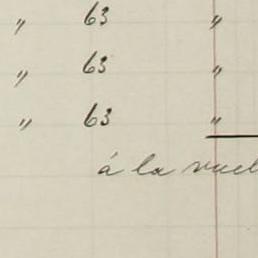 " 63 "
" 63 "
" 63 "
á la vuel